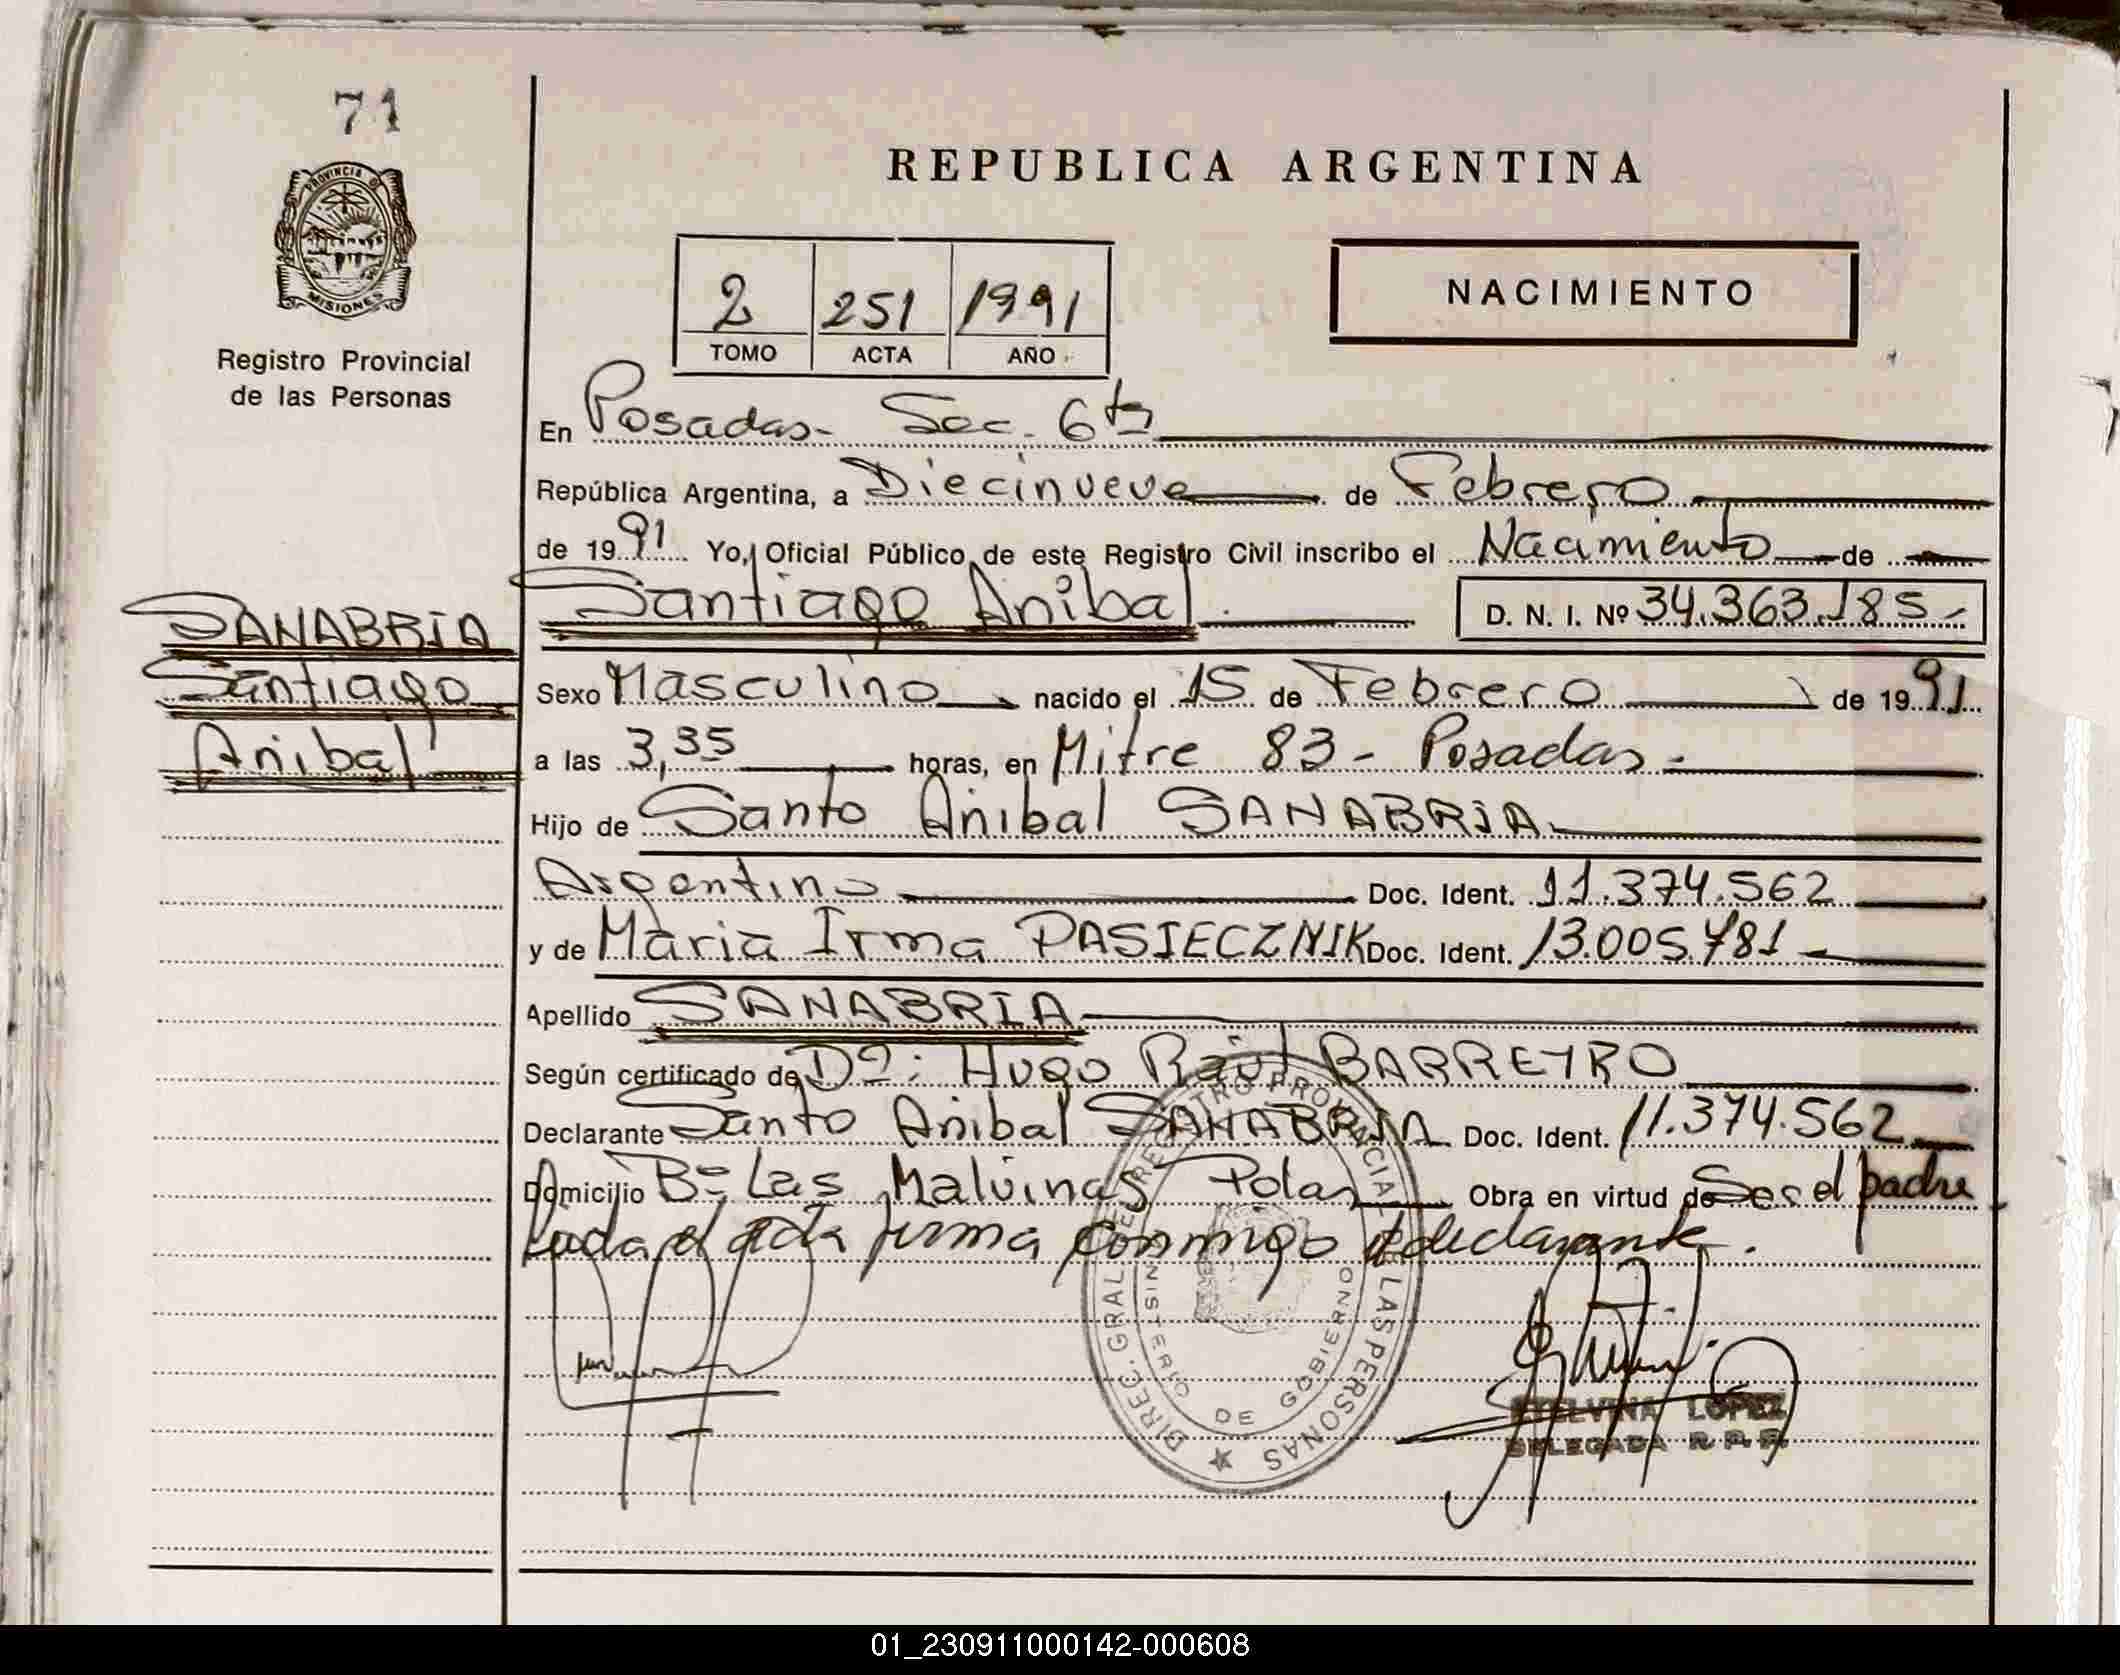 71
PROVINCIA D
MISIONES
Registro Provincial
de las Personas
REPUBLICA ARGENTINA
2 251 1991
TOMO ACTA AÑO
NACIMIENTO
En Posadas- Sec. 6ta
República Argentina, a Diecinueve de Febrero
de 1991 Yo, Oficial Público de este Registro Civil inscribo el Nacimiento de
Santiago Anibal D. N. I. Nº 34.363.185.-
SANABRIA
Santiago
Anibal
Sexo Masculino nacido el 15 de Febrero de 1991
a las 3,35 horas, en Mitre 83 - Posadas.-
Hijo de Santo Anibal SANABRIA
Argentino Doc. Ident. 11.374.562
y de Maria Irma PASIECZNIK Doc. Ident. 13.005.781
Apellido SANABRIA
Según certificado de Dº: Hugo Raúl BARREYRO
Declarante Santo Anibal SANABRIA Doc. Ident. 11.374.562
Domicilio Bº Las Malvinas Pdas Obra en virtud de Ser el padre
Leida el acta firma conmigo el declarante.
DIREC. GRAL. DE REGISTRO PROVINCIAL DE LAS PERSONAS
MINISTERIO DE GOBIERNO
ETELVINA LOPEZ
DELEGADA R.P.P.
01_230911000142-000608